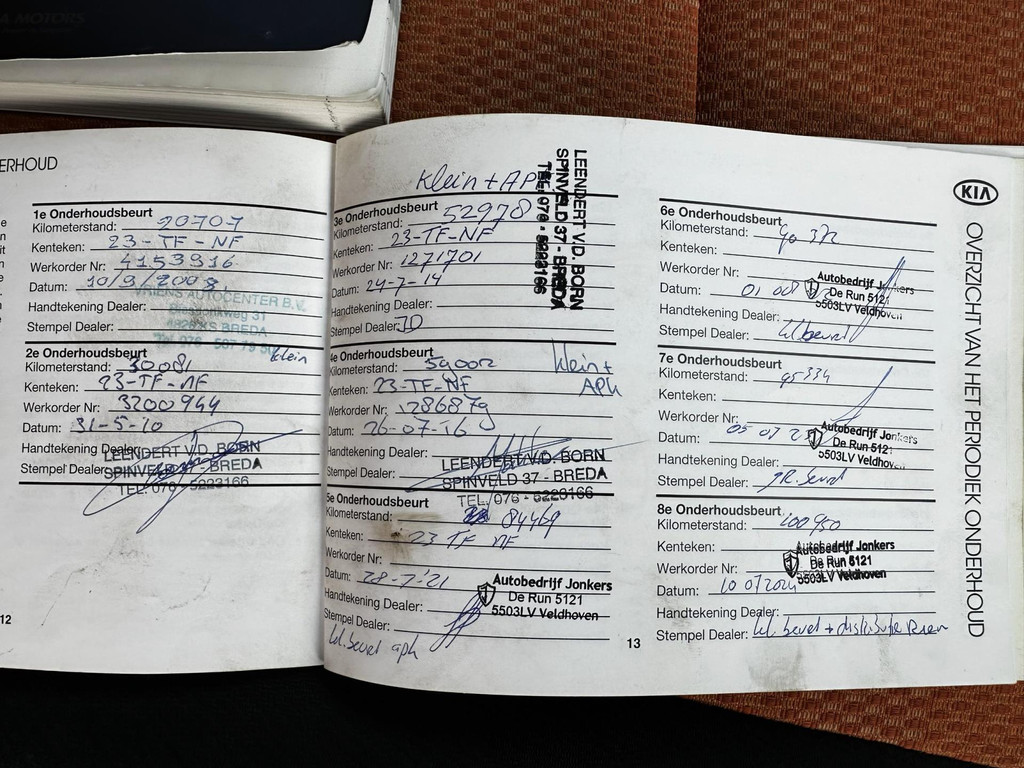 A MOTORS
ERHOUD
1e Onderhoudsbeurt
Kilometerstand: 20707
Kenteken: 23-TF-NF
Werkorder Nr: 4153916
Datum: 10/9/2008
Handtekening Dealer:
VRIENS AUTOCENTER B.V.
31
Stempel Dealer:
4826 XS BREDA
2e Onderhoudsbeurt klein
Kilometerstand: 30081
Kenteken: 23-TF-NF
Werkorder Nr: 3200944
Datum: 31-5-10
Handtekening Dealer:
LEENDERT V/D. BORN
Stempel Dealer:
SPINVELD 37 - BREDA
TEL. 076 - 5223166
12
Klein + APK
LEENDERT V/D. BORN
SPINVELD 37 - BREDA
TEL. 076 - 5223166
3e Onderhoudsbeurt
Kilometerstand: 52978
Kenteken: 23-TF-NF
Werkorder Nr: 1271701
Datum: 24-7-14
Handtekening Dealer:
Stempel Dealer: JD
4e Onderhoudsbeurt
klein + APK
Kilometerstand: 59002
Kenteken: 23-TF-NF
Werkorder Nr: 1286879
Datum: 26-07-16
Handtekening Dealer:
LEENDERT V/D. BORN
Stempel Dealer:
SPINVELD 37 - BREDA
TEL. 076 - 5223166
5e Onderhoudsbeurt
Kilometerstand: 84469
Kenteken: 23 TF NF
Werkorder Nr:
Datum: 28-7-'21
Autobedrijf Jonkers
De Run 5121
5503LV Veldhoven
Handtekening Dealer:
Stempel Dealer:
kl. beurt apk
13
6e Onderhoudsbeurt
Kilometerstand: 90 372
Kenteken:
Werkorder Nr:
Autobedrijf Jonkers
De Run 5121
5503LV Veldhoven
Datum: 01 008
Handtekening Dealer:
Stempel Dealer: kl. beurt
7e Onderhoudsbeurt
Kilometerstand: 95334
Kenteken:
Werkorder Nr:
Autobedrijf Jonkers
De Run 5121
5503LV Veldhoven
Datum: 05 07 2
Handtekening Dealer:
Stempel Dealer: gr. beurt
8e Onderhoudsbeurt
Kilometerstand: 100950
Kenteken:
Autobedrijf Jonkers
De Run 5121
5503LV Veldhoven
Werkorder Nr:
Datum: 10 07 2024
Handtekening Dealer:
Stempel Dealer: kl. beurt + distributie riem
KIA
OVERZICHT VAN HET PERIODIEK ONDERHOUD